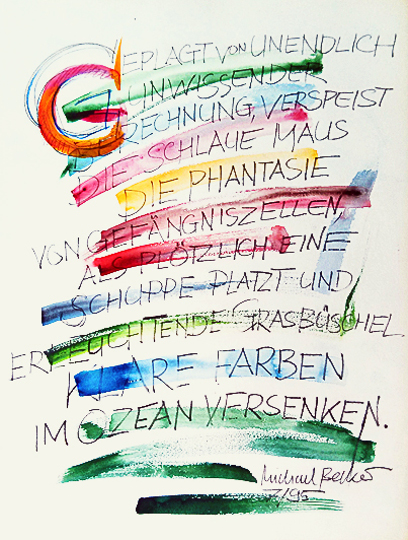 GEPLAGT VON UNENDLICH
UNWISSENDER
BERECHNUNG, VERSPEIST
DIE SCHLAUE MAUS
DIE PHANTASIE
VON GEFÄNGNISZELLEN,
ALS PLÖTZLICH EINE
SCHUPPE PLATZT UND
ERLEUCHTENDE GRASBÜSCHEL
KLARE FARBEN
IM OZEAN VERSENKEN.
Michael Becker
7/95